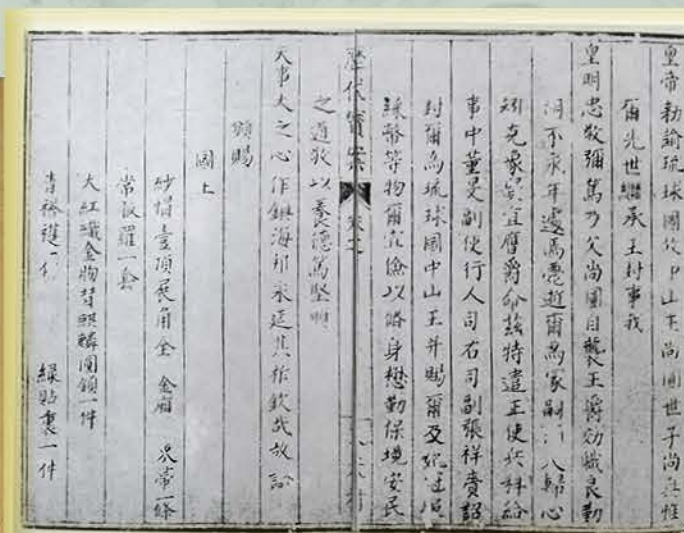 皇帝勅諭琉球國故中山王尚圓世子尚真惟
爾先世繼承王封事我
皇明忠敬彌篤乃父尚圓自襲王爵効職良勤
不永年遽焉薨逝爾為冢副人歸心
克象賢宜膺爵命茲特遣正使兵科給
事中董旻副使行人司右司副張祥齎詔
封爾為琉球國中山王并賜爾及妃冠服
綵幣等物爾宜儉以脩身懋勤保境安民
之道敬以養德篤堅
天事大之心作鎮海邦永延其祚欽哉故諭
歷代寶案
頒賜
國王
紗帽壹頂展角全 金廂 帶一條
常服羅一套
大紅織金胸背麒麟圓領一件
青褡一件 綠貼裏一件